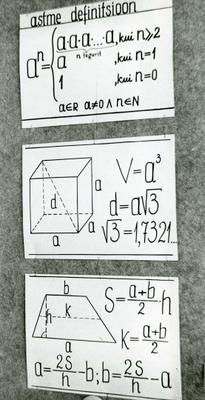 astme definitsioon
aⁿ = { a·a·a·...·a, kui n⩾2
n tegurit
a , kui n=1
1 , kui n=0
a∈R a≠0 ∧ n∈N
V=a³
d=a√3
√3=1,7321...
a
d
a
a
b
k
h
a
S=(a+b)/2·h
K=(a+b)/2
a=2S/h-b; b=2S/h-a